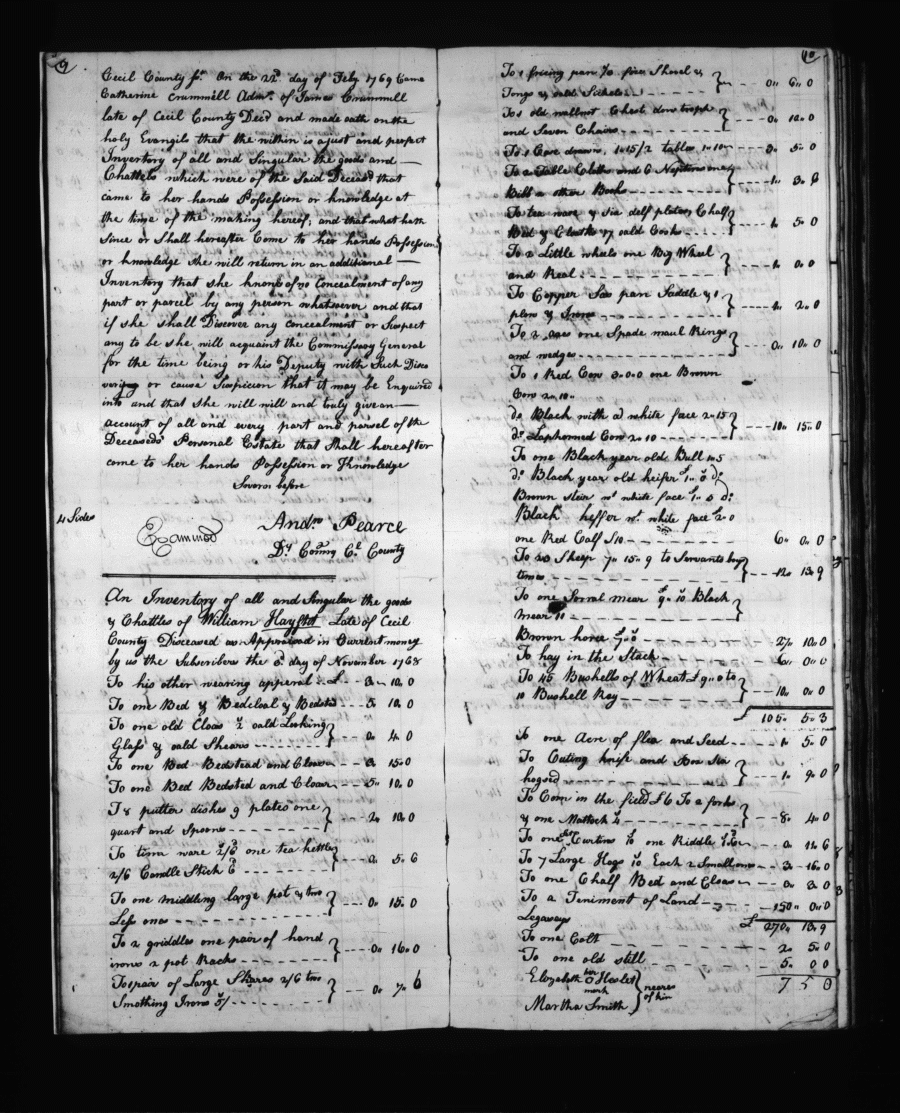 9
Cecil County ss. On the 22d day of Feby 1769 Came
Catherine Crummill Admx. of James Crummill
late of Cecil County Decd and made oath on the
holy Evangils that the within is a just and perfect
Inventory of all and Singular the goods and
Chattels which were of the Said Deceasd that
came to her hands Possession or knowledge at
the time of the making hereof, and that what hath
Since or Shall hereafter Come to her hands Possession
or knowledge she will return in an additional
Inventory that she knows of no Concealment of any
part or parcel by any person whatsoever and that
if she shall Discover any concealment or Suspect
any to be she will acquaint the Commissary General
for the time being or his Deputy with Such Disco
vering or cause Suspicion that it may be Enquired
into and that she will will and truly give an
account of all and every part and parsel of the
Deceaseds Personal Estate that Shall hereafter
come to her hands Possession or Knowledge
Sworn before
4 Sides
Examined
Andw Pearce
Dy Comry Cl County
An Inventory of all and Singular the goods
& Chattles of William Late of Cecil
County Disceased as Appraised in Current money
by us the Subscribers the 8 day of November 1768
To his other wearing apperal £ 3 10 0
To one Bed & Bedcloal & Bedsted 5 10 0
To one old Cloas 2 oald Looking
Glass & oald Shears 0 4 0
To one Bed Bedstead and Cloas 3 15 0
To one Bed Bedsted and Cloas 5 10 0
To 8 putter dishes 9 plates one
quart and Spoons 2 10 0
To tinn ware 2/6 one tea kettle
2/6 Candle Stick 6d 0 5 6
To one middling large pot & two
Less ones 0 15 0
To 2 griddles one pair of hand
irons 2 pot Racks 0 16 0
To pair of Large Shears 2/6 two
Smothing Irons 5/ 0 7 6
10
To 1 friing pan fire Shovel &
Tongs & oald Sickels 0 6 0
To 1 old wallnut Chest dow troph
and Seven Chairs 0 12 0
To 1 Case drawrs 1 15/2 tables 1 10 3 5 0
To 2 Table Cloths and 6 Napkins one
Bible & other Books 1 3 8
To tea ware & six delf plates Chaff
Bed & Cloaths & oald Cooks 1 5 0
To 2 Little wheels one Big Wheel
and Real 1 0 0
To Copper Sas pan Saddle & 1
plow & Irons 2 2 0
To 2 axes one Spade maul Rings
and wedges 0 10 0
To 1 Red Cow 3 0 0 one Brown
Cow 2 10
do Black with a white face 2 15
do Laphorned Cow 2 10 10 15 0
To one Black year old Bull 1 5
do Black year old heifer £1 0 do
Brown steir wt white face £1 5 do
Black heffer wt white face £2 0
one Red Calf S10 6 0 0
To 20 Sheep 7 15 9 to Servants boy
times 12 13 9
To one Sorral mear £9 10 Black
mear 10
Brown horse £7 0 27 10 0
To hay in the Stack 6 0 0
To 45 Bushells of Wheat £9 0 to
10 Bushell Rey 10 0 0
£ 105 5 3
To one Acre of flex and Seed 1 5 0
To Cuting knife and Box Six
hogsed 1 9 0
To Corn in the field £6 To 2 forks
& one Mattock 4 8 4 0
To one Curtins one Riddle 0 11 6
To 7 Large Hogs Each 2 Small ones 3 16 0
To one Chaff Bed and Cloas 0 3 0
To a Teniment of Land 150 0 0
Legaways £ 270 13 9
To one Colt 2 5 0
To one old still 5 0 0
Elizabeth her O mark Haslet 7 5 0
Martha Smith
neares
of kin